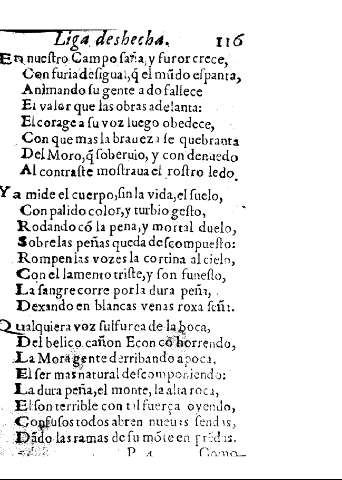 Liga deshecha. 116
En nuestro Campo saña, y furor crece,
Con furia desigual, q̃ el mũdo espanta,
Animando su gente a do fallece
El valor que las obras adelanta:
El corage a su voz luego obedece,
Con que mas la braueza se quebranta
Del Moro, q̃ soberuio, y con denuedo
Al contraste mostraua el rostro ledo.
Ya mide el cuerpo, sin la vida, el suelo,
Con palido color, y turbio gesto,
Rodando cõ la pena, y mortal duelo,
Sobre las peñas queda descompuesto:
Rompen las vozes la cortina al cielo,
Con el lamento triste, y son funesto,
La sangre corre por la dura peña,
Dexando en blancas venas roxa seña.
Qualquiera voz sulfurea de la boca,
Del belico cañon Econ cõ horrendo,
La Mora gente derribando apoca,
El ser mas natural descomponiendo:
La dura peña, el monte, la alta roca,
El son terrible con tal fuerça oyendo,
Confusos todos abren nueuas sendas,
Dãdo las ramas de su mõte en prẽdas.
P 4 Como